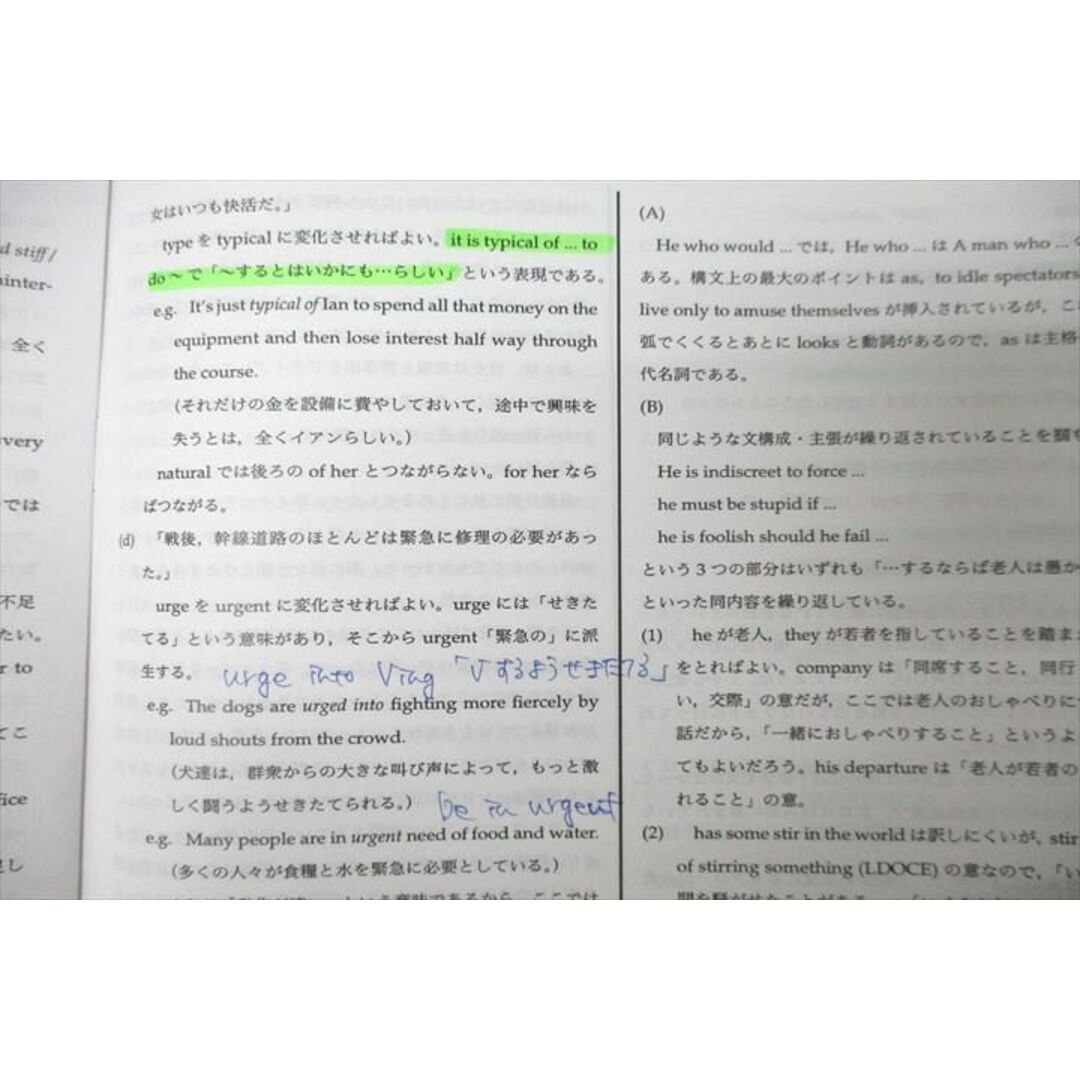 d stiff /
ainter-
全く
very
では
不足
たい。
r to
てこ
fice
女はいつも快活だ。」
type を typical に変化させればよい。it is typical of ... to
do ～ で「～するとはいかにも…らしい」という表現である。
e.g. It's just typical of Ian to spend all that money on the
equipment and then lose interest half way through
the course.
(それだけの金を設備に費やしておいて，途中で興味を
失うとは，全くイアンらしい。)
natural では後ろの of her とつながらない。for her なら
ばつながる。
(d) 「戦後，幹線道路のほとんどは緊急に修理の必要があっ
た。」
urge を urgent に変化させればよい。urge には「せきた
てる」という意味があり，そこから urgent「緊急の」に派
生する。 urge into Ving 「Vするようせきたてる」
e.g. The dogs are urged into fighting more fiercely by
loud shouts from the crowd.
(犬達は，群衆からの大きな叫び声によって，もっと激
しく闘うようせきたてられる。) be in urgent
e.g. Many people are in urgent need of food and water.
(多くの人々が食糧と水を緊急に必要としている。)
(A)
He who would ... では，He who ... は A man who ...
ある。構文上の最大のポイントは as。to idle spectators
live only to amuse themselves が挿入されているが，こ
弧でくくるとあとに looks と動詞があるので，as は主格
代名詞である。
(B)
同じような文構成・主張が繰り返されていることを
He is indiscreet to force ...
he must be stupid if ...
he is foolish should he fail ...
という3つの部分はいずれも「…するならば老人は愚か
といった同内容を繰り返している。
(1) he が老人，they が若者を指していることを踏ま
をとればよい。company は「同席すること，同行
い，交際」の意だが，ここでは老人のおしゃべりに
話だから，「一緒におしゃべりすること」というよ
てもよいだろう。his departure は「老人が若者の
れること」の意。
(2) has some stir in the world は訳しにくいが，stir
of stirring something (LDOCE) の意なので，「い